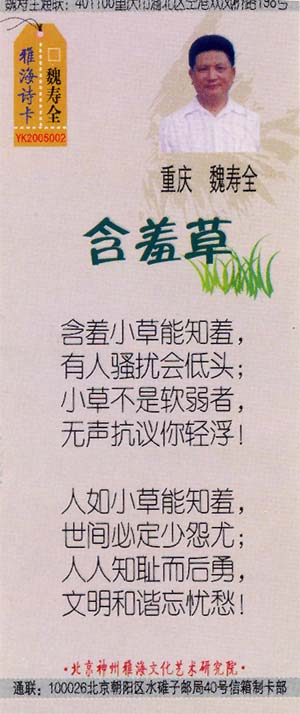 魏寿全通联：401100重庆市渝北区空港双凤桥路198号
雅海诗卡
□魏寿全
YK2005002
重庆 魏寿全
含羞草
含羞小草能知羞，
有人骚扰会低头；
小草不是软弱者，
无声抗议你轻浮！
人如小草能知羞，
世间必定少怨尤；
人人知耻而后勇，
文明和谐忘忧愁！
·北京神州雅海文化艺术研究院·
通联：100026北京朝阳区水碓子邮局40号信箱制卡部